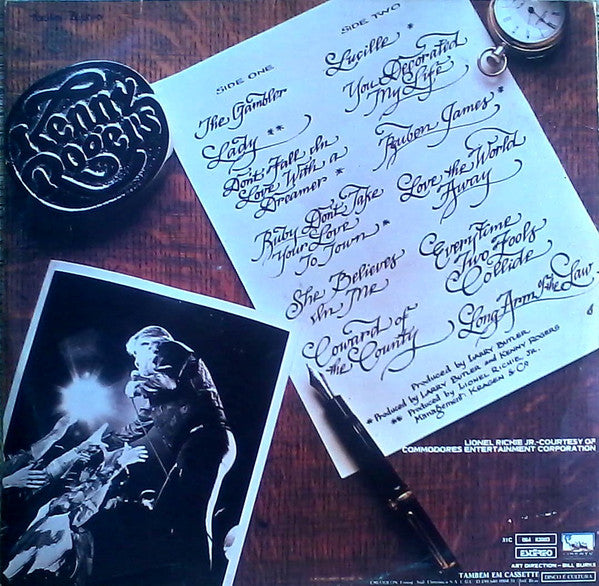 Kenny
Rogers
SIDE ONE
The Gambler
Lady **
Don't Fall In
Love With a
Dreamer *
Ruby Don't Take
Your Love
To Town *
She Believes
In Me
Coward of
the County
SIDE TWO
Lucille *
You Decorated
My Life
Reuben James *
Love the World
Away
Everytime
Two Fools
Collide
Long Arm of the Law
Produced by LARRY BUTLER
* Produced by LARRY BUTLER and KENNY ROGERS
** Produced by LIONEL RICHIE JR.
Management: KRAGEN & CO
LIONEL RICHIE JR.-COURTESY OF
COMMODORES ENTERTAINMENT CORPORATION
31C
ESTÉREO
LIBERTY
ART DIRECTION - BILL BURKS
TAMBEM EM CASSETTE
DISCO É CULTURA